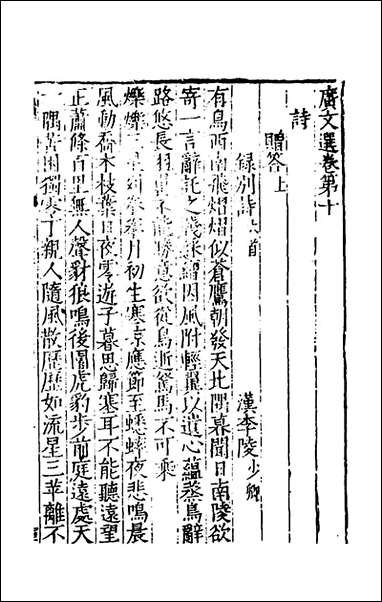 廣文選卷第十
詩
贈答上
録別詩 首 漢李陵少卿
有鳥西南飛熠熠似蒼鷹朝發天北隅暮聞日南陵欲
寄一言辭託之牋綵繒因風附輕翼以遺心蘊蒸鳥辭
路悠長羽翼不能勝意欲從鳥逝駑馬不可乘
爍爍三 列 月初生寒凉應節至蟋蟀夜悲鳴晨
風動喬木枝葉日夜零遊子暮思歸塞耳不能聽遠望
正蕭條百里無人聲豺狼鳴後園虎豹步前庭遠處天
一隅苦困獨零丁親人隨風散歷歷如流星三苹離不